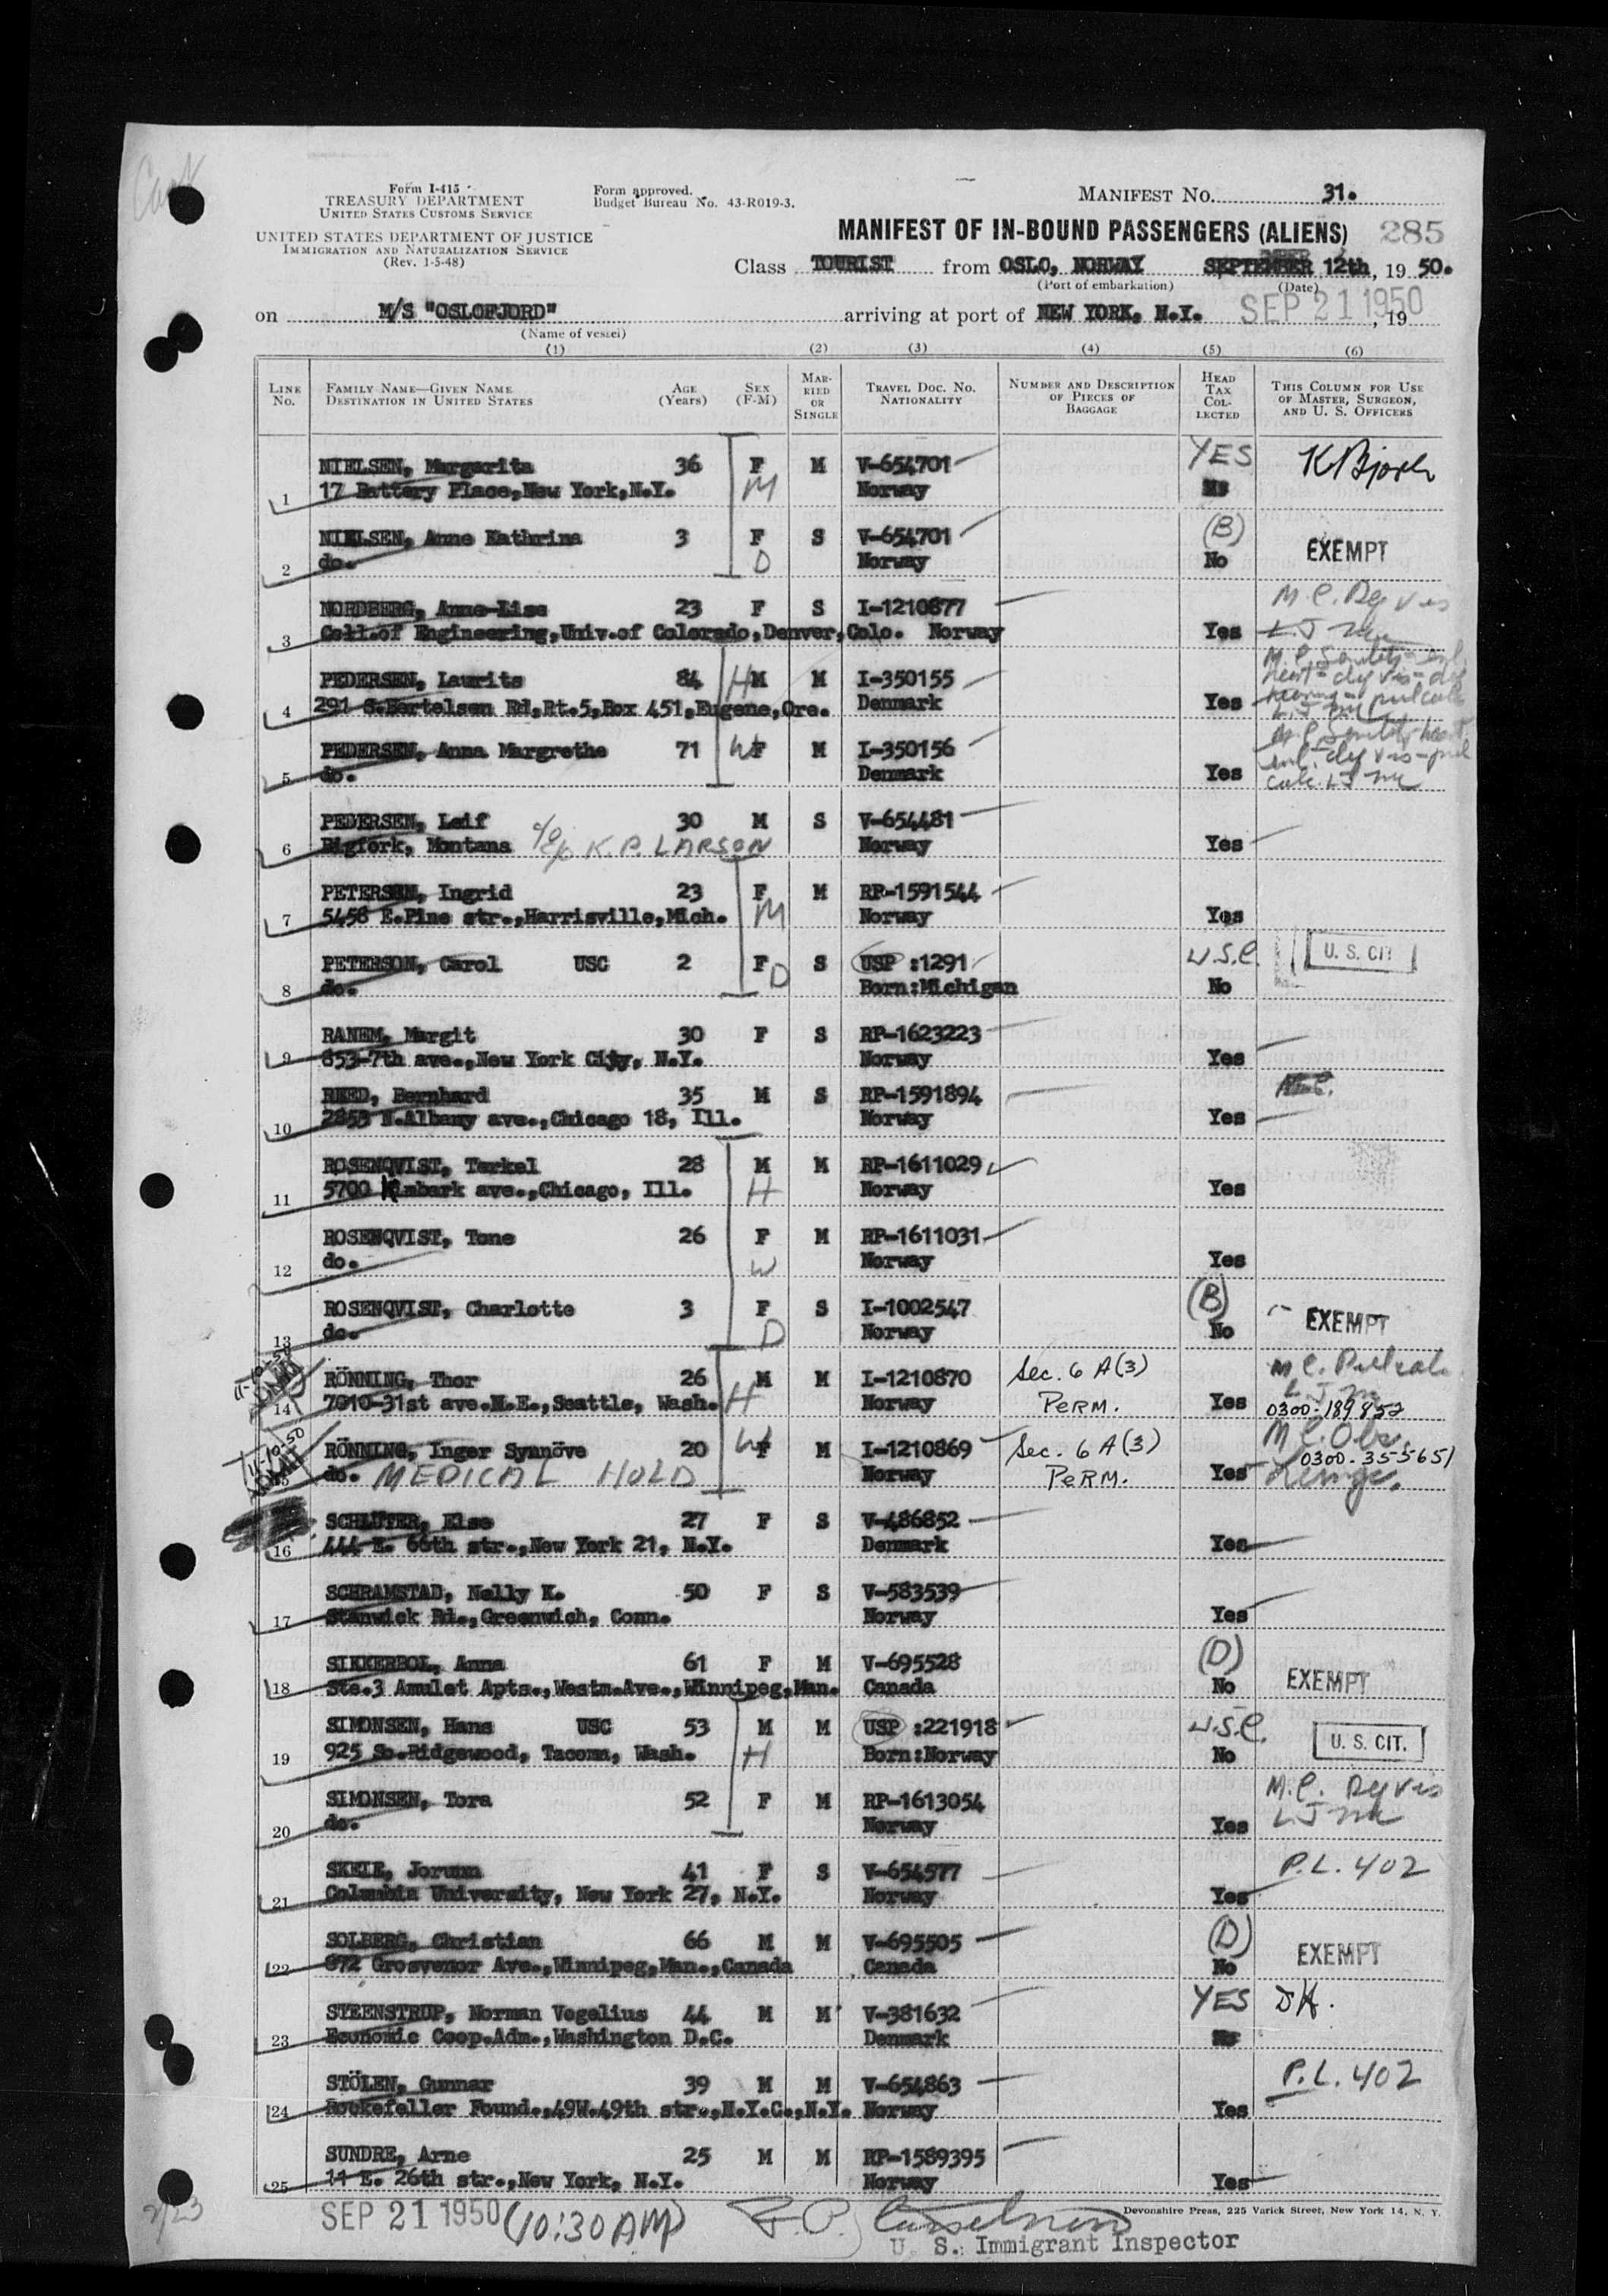 Form I-415
TREASURY DEPARTMENT
UNITED STATES CUSTOMS SERVICE
Form approved.
Budget Bureau No. 43-R019-3.
MANIFEST NO. 31.
UNITED STATES DEPARTMENT OF JUSTICE
IMMIGRATION AND NATURALIZATION SERVICE
(Rev. 1-5-48)
MANIFEST OF IN-BOUND PASSENGERS (ALIENS) 285
Class TOURIST from OSLO, NORWAY SEPTEMBER 12th, 19 50.
(Port of embarkation) (Date)
on M/S "OSLOFJORD" arriving at port of NEW YORK, N.Y. SEP 21 1950, 19
(Name of vessel)
(1) (2) (3) (4) (5) (6)
LINE NO. FAMILY NAME—GIVEN NAME DESTINATION IN UNITED STATES AGE (Years) SEX (F-M) MARRIED OR SINGLE TRAVEL DOC. NO. NATIONALITY NUMBER AND DESCRIPTION OF PIECES OF BAGGAGE HEAD TAX COLLECTED THIS COLUMN FOR USE OF MASTER, SURGEON, AND U. S. OFFICERS
NIELSEN, Margarita 36 F M V-654701 YES
1 17 Battery Place, New York, N.Y. M Norway
NIELSEN, Anne Kathrina 3 F S V-654701 (B) EXEMPT
2 do. D Norway No
NORDBERG, Anne-Lise 23 F S I-1210877 M.C. Dy vis
3 Coll.of Engineering,Univ.of Colorado,Denver,Colo. Norway Yes
PEDERSEN, Laurits 84 H M M I-350155
4 291 S.Bertelsen Rd,Rt.5,Box 451,Eugene,Ore. Denmark Yes
PEDERSEN, Anna Margrethe 71 W F M I-350156
5 do. Denmark Yes
PEDERSEN, Leif 30 M S V-654481
6 Bigfork, Montana c/o K.P. LARSON Norway Yes
PETERSEN, Ingrid 23 F M RP-1591544
7 5458 E.Pine str.,Harrisville,Mich. M Norway Yes
PETERSON, Carol USC 2 F D S USP :1291 U.S.C. U. S. CIT
8 do. Born:Michigan No
RANEM, Margit 30 F S RP-1623223
9 853-7th ave.,New York City, N.Y. Norway Yes
REED, Bernhard 35 M S RP-1591894
10 2853 N.Albany ave.,Chicago 18, Ill. Norway Yes
ROSENQVIST, Terkel 28 M M RP-1611029
11 5700 Kimbark ave.,Chicago, Ill. H Norway Yes
ROSENQVIST, Tone 26 F M RP-1611031
12 do. W Norway Yes
ROSENQVIST, Charlotte 3 F S I-1002547 (B) EXEMPT
13 do. D Norway No
RÖNNING, Thor 26 M M I-1210870 Sec. 6 A(3)
14 7010-31st ave.N.E.,Seattle, Wash. H Norway PERM. Yes 0300-189852
RÖNNING, Inger Synnöve 20 W F M I-1210869 Sec. 6 A(3) M C. Obs.
do. MEDICAL HOLD Norway PERM. Yes 0300-355651
SCHLÜTER, Else 27 F S V-486852
16 444 E. 66th str.,New York 21, N.Y. Denmark Yes
SCHRAMSTAD, Nelly K. 50 F S V-583539
17 Stanwick Rd.,Greenwich, Conn. Norway Yes
SIKKERBOL, Anna 61 F M V-695528 (D) EXEMPT
18 Ste.3 Amulet Apts.,Westm.Ave.,Winnipeg,Man. Canada No
SIMONSEN, Hans USC 53 M M USP :221918 U.S.C. U. S. CIT.
19 925 So.Ridgewood, Tacoma, Wash. H Born:Norway No
SIMONSEN, Tora 52 F M RP-1613054 M.C. Dy vis
20 do. Norway Yes
SKEIE, Jorunn 41 F S V-654577 P.L. 402
21 Columbia University, New York 27, N.Y. Norway Yes
SOLBERG, Christian 66 M M V-695505 (D) EXEMPT
22 872 Grosvenor Ave.,Winnipeg,Man.,Canada Canada No
STEENSTRUP, Norman Vegelius 44 M M V-381632 YES DK.
23 Economic Coop.Adm.,Washington D.C. Denmark
STÖLEN, Gunnar 39 M M V-654863 P.L. 402
24 Rockefeller Found.,49W.49th str.,N.Y.C.,N.Y. Norway Yes
SUNDRE, Arne 25 M M RP-1589395
25 11 E. 26th str.,New York, N.Y. Norway Yes
SEP 21 1950 (10:30 AM)
Devonshire Press, 225 Varick Street, New York 14, N. Y.
U. S. Immigrant Inspector